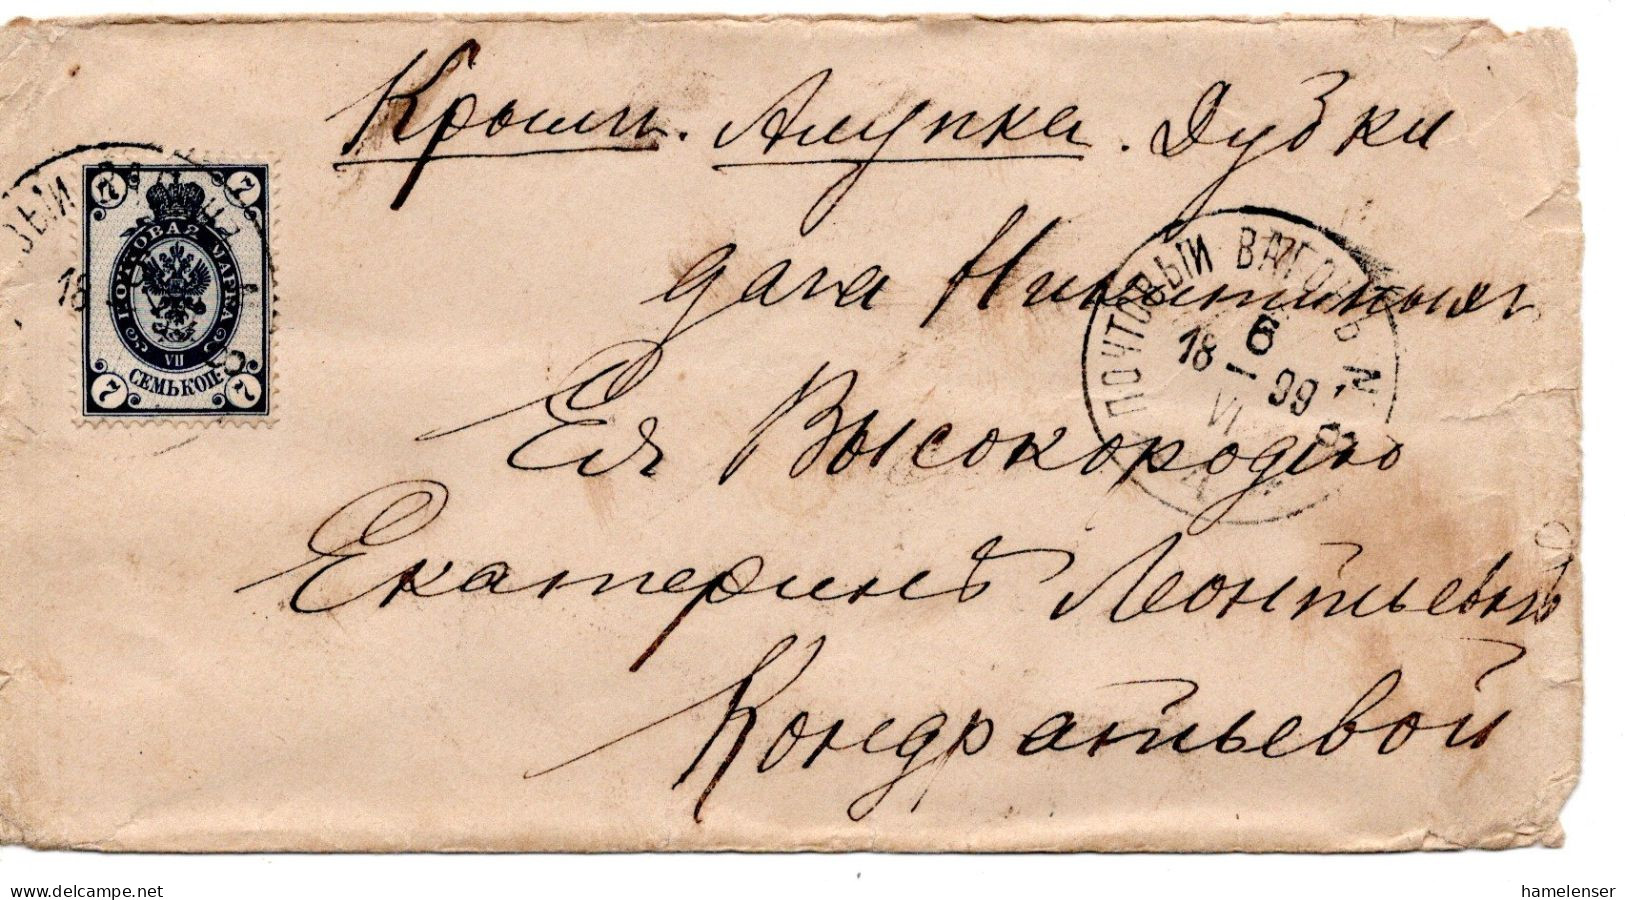 Крымъ. Алупка. Дубки
дача Никитиныхъ
Ея Высокородію
Екатеринѣ Леонтьевнѣ
Кондратьевой
ПОЧТОВЫЙ ВАГОНЪ №
18 6 99
VI
ВЫЙ ВА
18
7 7
ПОЧТОВАЯ МАРКА
VII
СЕМЬ КОП.
7 7
www.delcampe.net
hamelenser